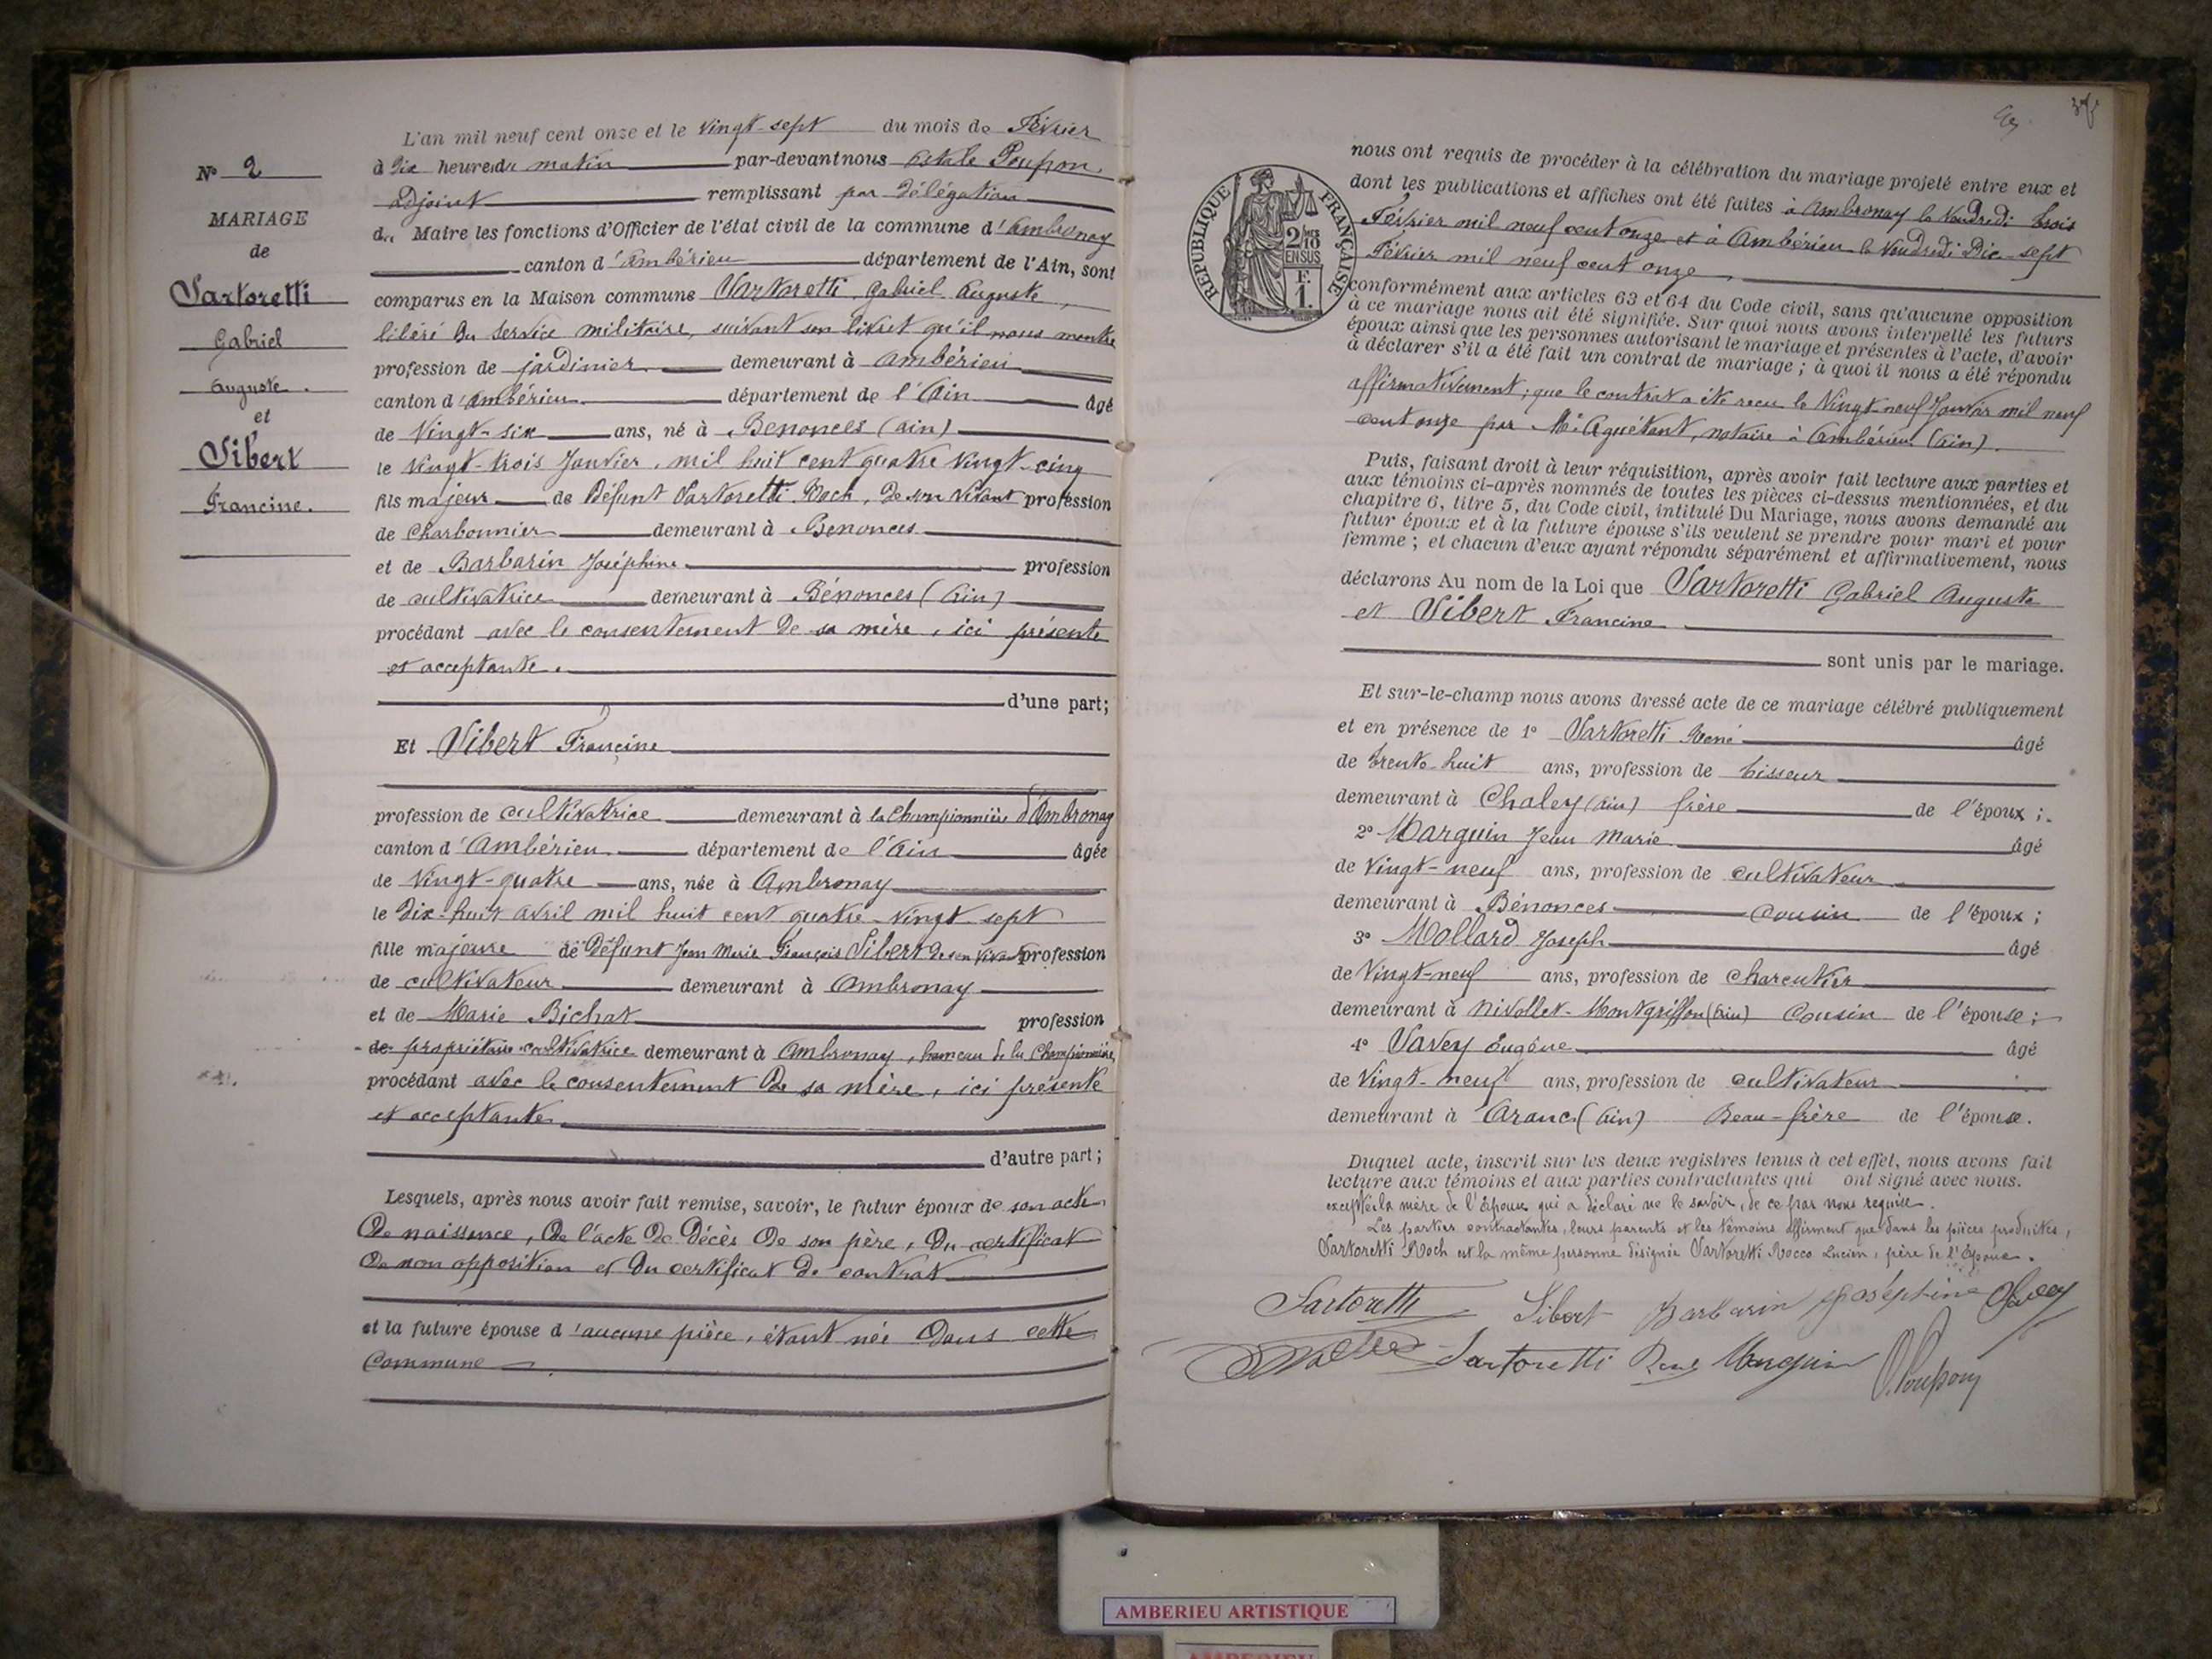 N° 2
MARIAGE
de
Sartoretti
Gabriel
Auguste.
et
Sibert
Francine.
L'an mil neuf cent onze et le vingt-sept du mois de Février
à dix heures du matin par-devant nous Poupon.
adjoint remplissant par délégation
du Maire les fonctions d'Officier de l'état civil de la commune d'Ambronay
canton d'Ambérieu département de l'Ain, sont
comparus en la Maison commune Sartoretti Gabriel Auguste,
libéré du service militaire, suivant son livret qu'il nous montre
profession de jardinier demeurant à Ambérieu
canton d'Ambérieu département de l'Ain âgé
de vingt-six ans, né à Benonces (Ain)
le vingt-trois Janvier, mil huit cent quatre vingt-cinq
fils majeur de Défunt Sartoretti Roch, de son vivant profession
de charbonnier demeurant à Benonces
et de Barbarin Joséphine profession
de cultivatrice demeurant à Bénonces (Ain)
procédant avec le consentement de sa mère, ici présente
et acceptante.
d'une part;
Et Sibert Francine
profession de cultivatrice demeurant à la Championnière d'Ambronay
canton d'Ambérieu département de l'Ain âgée
de vingt-quatre ans, née à Ambronay
le dix-huit avril mil huit cent quatre-vingt sept
fille majeure de Défunt Jean Marie François Sibert de son vivant profession
de cultivateur demeurant à Ambronay
et de Marie Bichat profession
de propriétaire cultivatrice demeurant à Ambronay, hameau de la Championnière,
procédant avec le consentement de sa mère, ici présente
et acceptante
d'autre part;
Lesquels, après nous avoir fait remise, savoir, le futur époux de son acte
de naissance, de l'acte de décès de son père, du certificat
de non opposition et du certificat de contrat
et la future épouse d'aucune pièce, étant née dans cette
commune
REPUBLIQUE FRANÇAISE
2/10
EN SUS
F.
1.
nous ont requis de procéder à la célébration du mariage projeté entre eux et
dont les publications et affiches ont été faites à Ambronay le vendredi trois
Février mil neuf cent onze et à Ambérieu le vendredi Dix-sept
Février mil neuf cent onze
conformément aux articles 63 et 64 du Code civil, sans qu'aucune opposition
à ce mariage nous ait été signifiée. Sur quoi nous avons interpellé les futurs
époux ainsi que les personnes autorisant le mariage et présentes à l'acte, d'avoir
à déclarer s'il a été fait un contrat de mariage; à quoi il nous a été répondu
affirmativement; que le contrat a été reçu le vingt neuf Janvier mil neuf
cent onze par Me Aguétant, notaire à Ambérieu (Ain).
Puis, faisant droit à leur réquisition, après avoir fait lecture aux parties et
aux témoins ci-après nommés de toutes les pièces ci-dessus mentionnées, et du
chapitre 6, titre 5, du Code civil, intitulé Du Mariage, nous avons demandé au
futur époux et à la future épouse s'ils veulent se prendre pour mari et pour
femme; et chacun d'eux ayant répondu séparément et affirmativement, nous
déclarons Au nom de la Loi que Sartoretti Gabriel Auguste
et Sibert Francine
sont unis par le mariage.
Et sur-le-champ nous avons dressé acte de ce mariage célébré publiquement
et en présence de 1° Sartoretti René âgé
de trente-huit ans, profession de tisseur
demeurant à Chaley (Ain) frère de l'époux;
2° Marguin Jean Marie âgé
de vingt-neuf ans, profession de cultivateur
demeurant à Bénonces cousin de l'époux;
3° Mollard Joseph âgé
de vingt-neuf ans, profession de charcutier
demeurant à Nivollet-Montgriffon (Ain) cousin de l'épouse;
4° Savey Eugène âgé
de vingt-neuf ans, profession de cultivateur
demeurant à Aranc (Ain) Beau-frère de l'épouse.
Duquel acte, inscrit sur les deux registres tenus à cet effet, nous avons fait
lecture aux témoins et aux parties contractantes qui ont signé avec nous.
exceptée la mère de l'épouse qui a déclaré ne le savoir, de ce par nous requise.
Les parties contractantes, leurs parents et les témoins affirment que dans les pièces produites,
Sartoretti Roch est la même personne désignée Sartoretti Rocco Lucien, père de l'époux.
Sartoretti Sibert Barbarin Joséphine Savey
Sartoretti René Marguin Poupon
AMBERIEU ARTISTIQUE
AMBERIEU